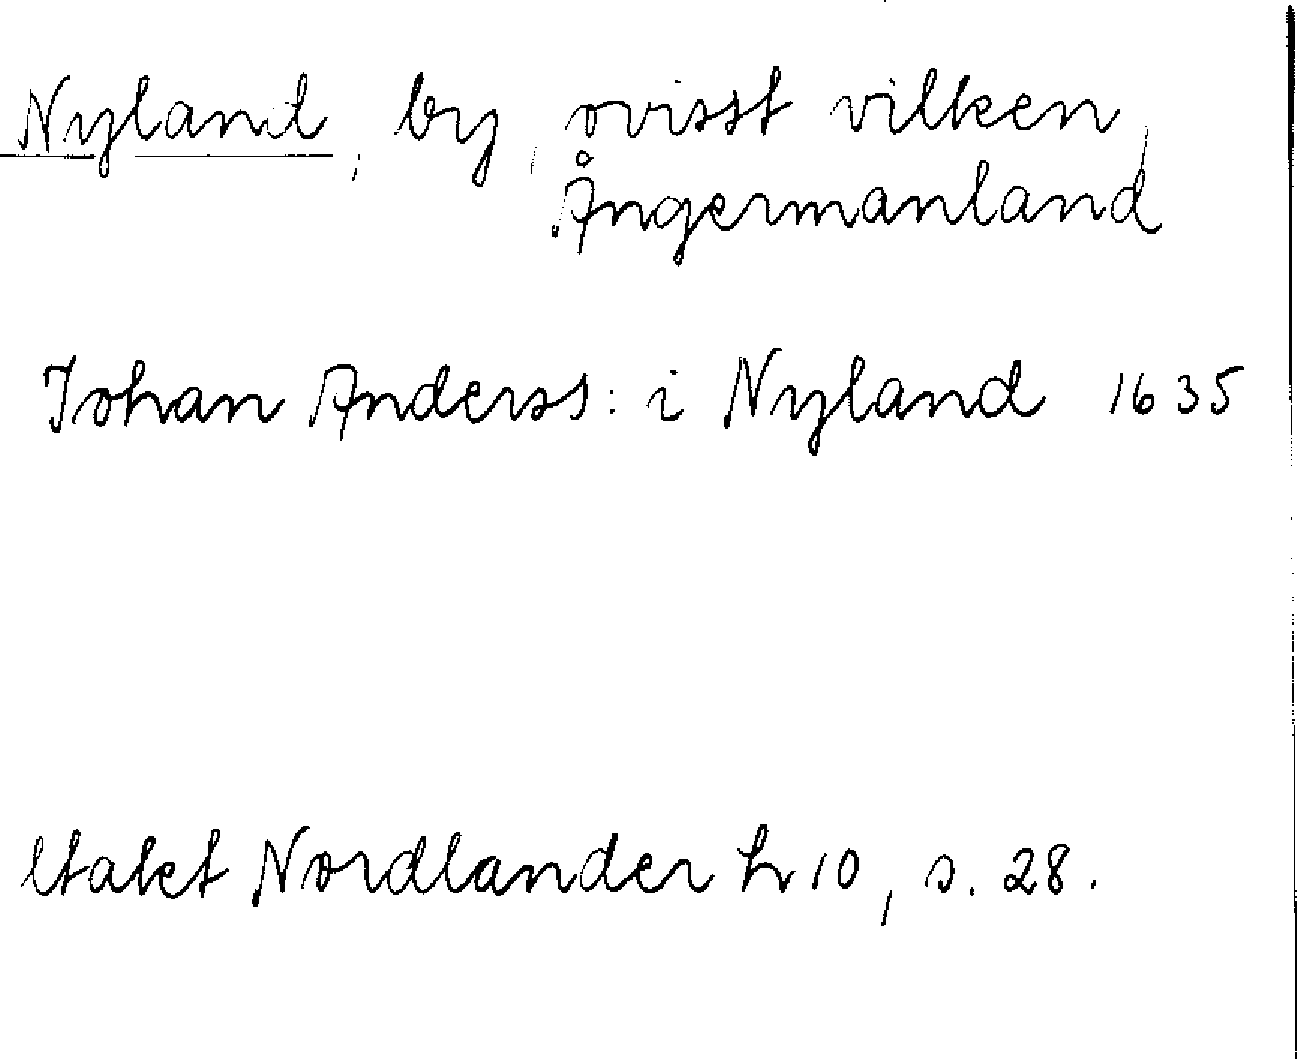 Nyland, by, ovisst vilken,
Ångermanland
Johan Anderss: i Nyland 1635
Utalet Nordlander h 10, s. 28.